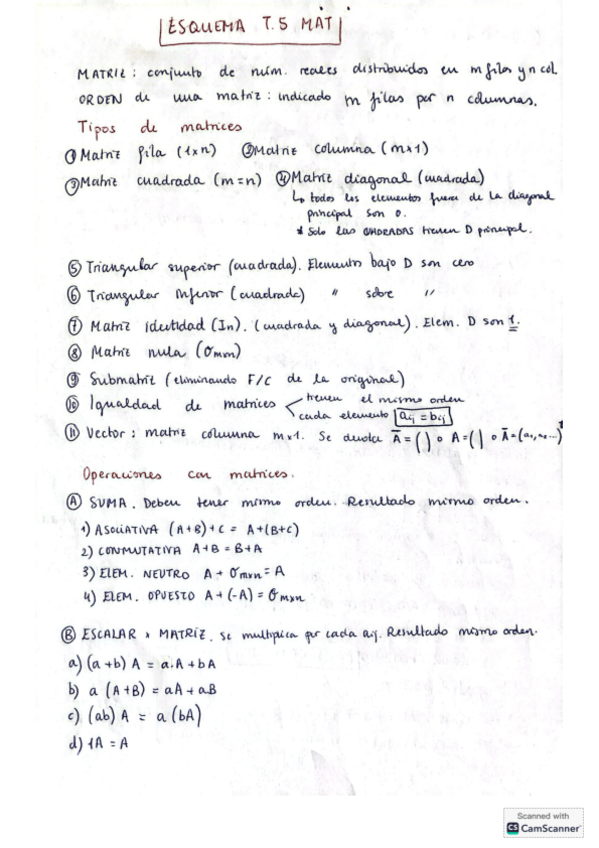 ESQUEMA T.5 MAT
MATRIZ: conjunto de núm. reales distribuidos en m filas y n col.
ORDEN de una matriz: indicado m filas por n columnas.
Tipos de matrices
① Matriz fila (1xn) ② Matriz columna (mx1)
③ Matriz cuadrada (m=n) ④ Matriz diagonal (cuadrada)
↳ todos los elementos fuera de la diagonal
principal son 0.
* Solo las CUADRADAS tienen D principal.
⑤ Triangular superior (cuadrada). Elementos bajo D son cero
⑥ Triangular inferior (cuadrada) " sobre "
⑦ Matriz identidad (In). (cuadrada y diagonal). Elem. D son 1.
⑧ Matriz nula (Omxn)
⑨ Submatriz (eliminando F/C de la original)
⑩ Igualdad de matrices tienen el mismo orden
cada elemento aij = bij
⑪ Vector: matriz columna mx1. Se denota Ā = ( ) o A = ( ) o Ā = (a1, a2...)
Operaciones con matrices.
Ⓐ SUMA. Deben tener mismo orden. Resultado mismo orden.
1) ASOCIATIVA (A+B)+C = A+(B+C)
2) CONMUTATIVA A+B = B+A
3) ELEM. NEUTRO A + Omxn = A
4) ELEM. OPUESTO A+(-A) = Omxn
Ⓑ ESCALAR x MATRIZ. Se multiplica por cada aij. Resultado mismo orden.
a) (a+b) A = a.A + bA
b) a (A+B) = aA + aB
c) (ab) A = a (bA)
d) 1A = A
Scanned with
CS CamScanner